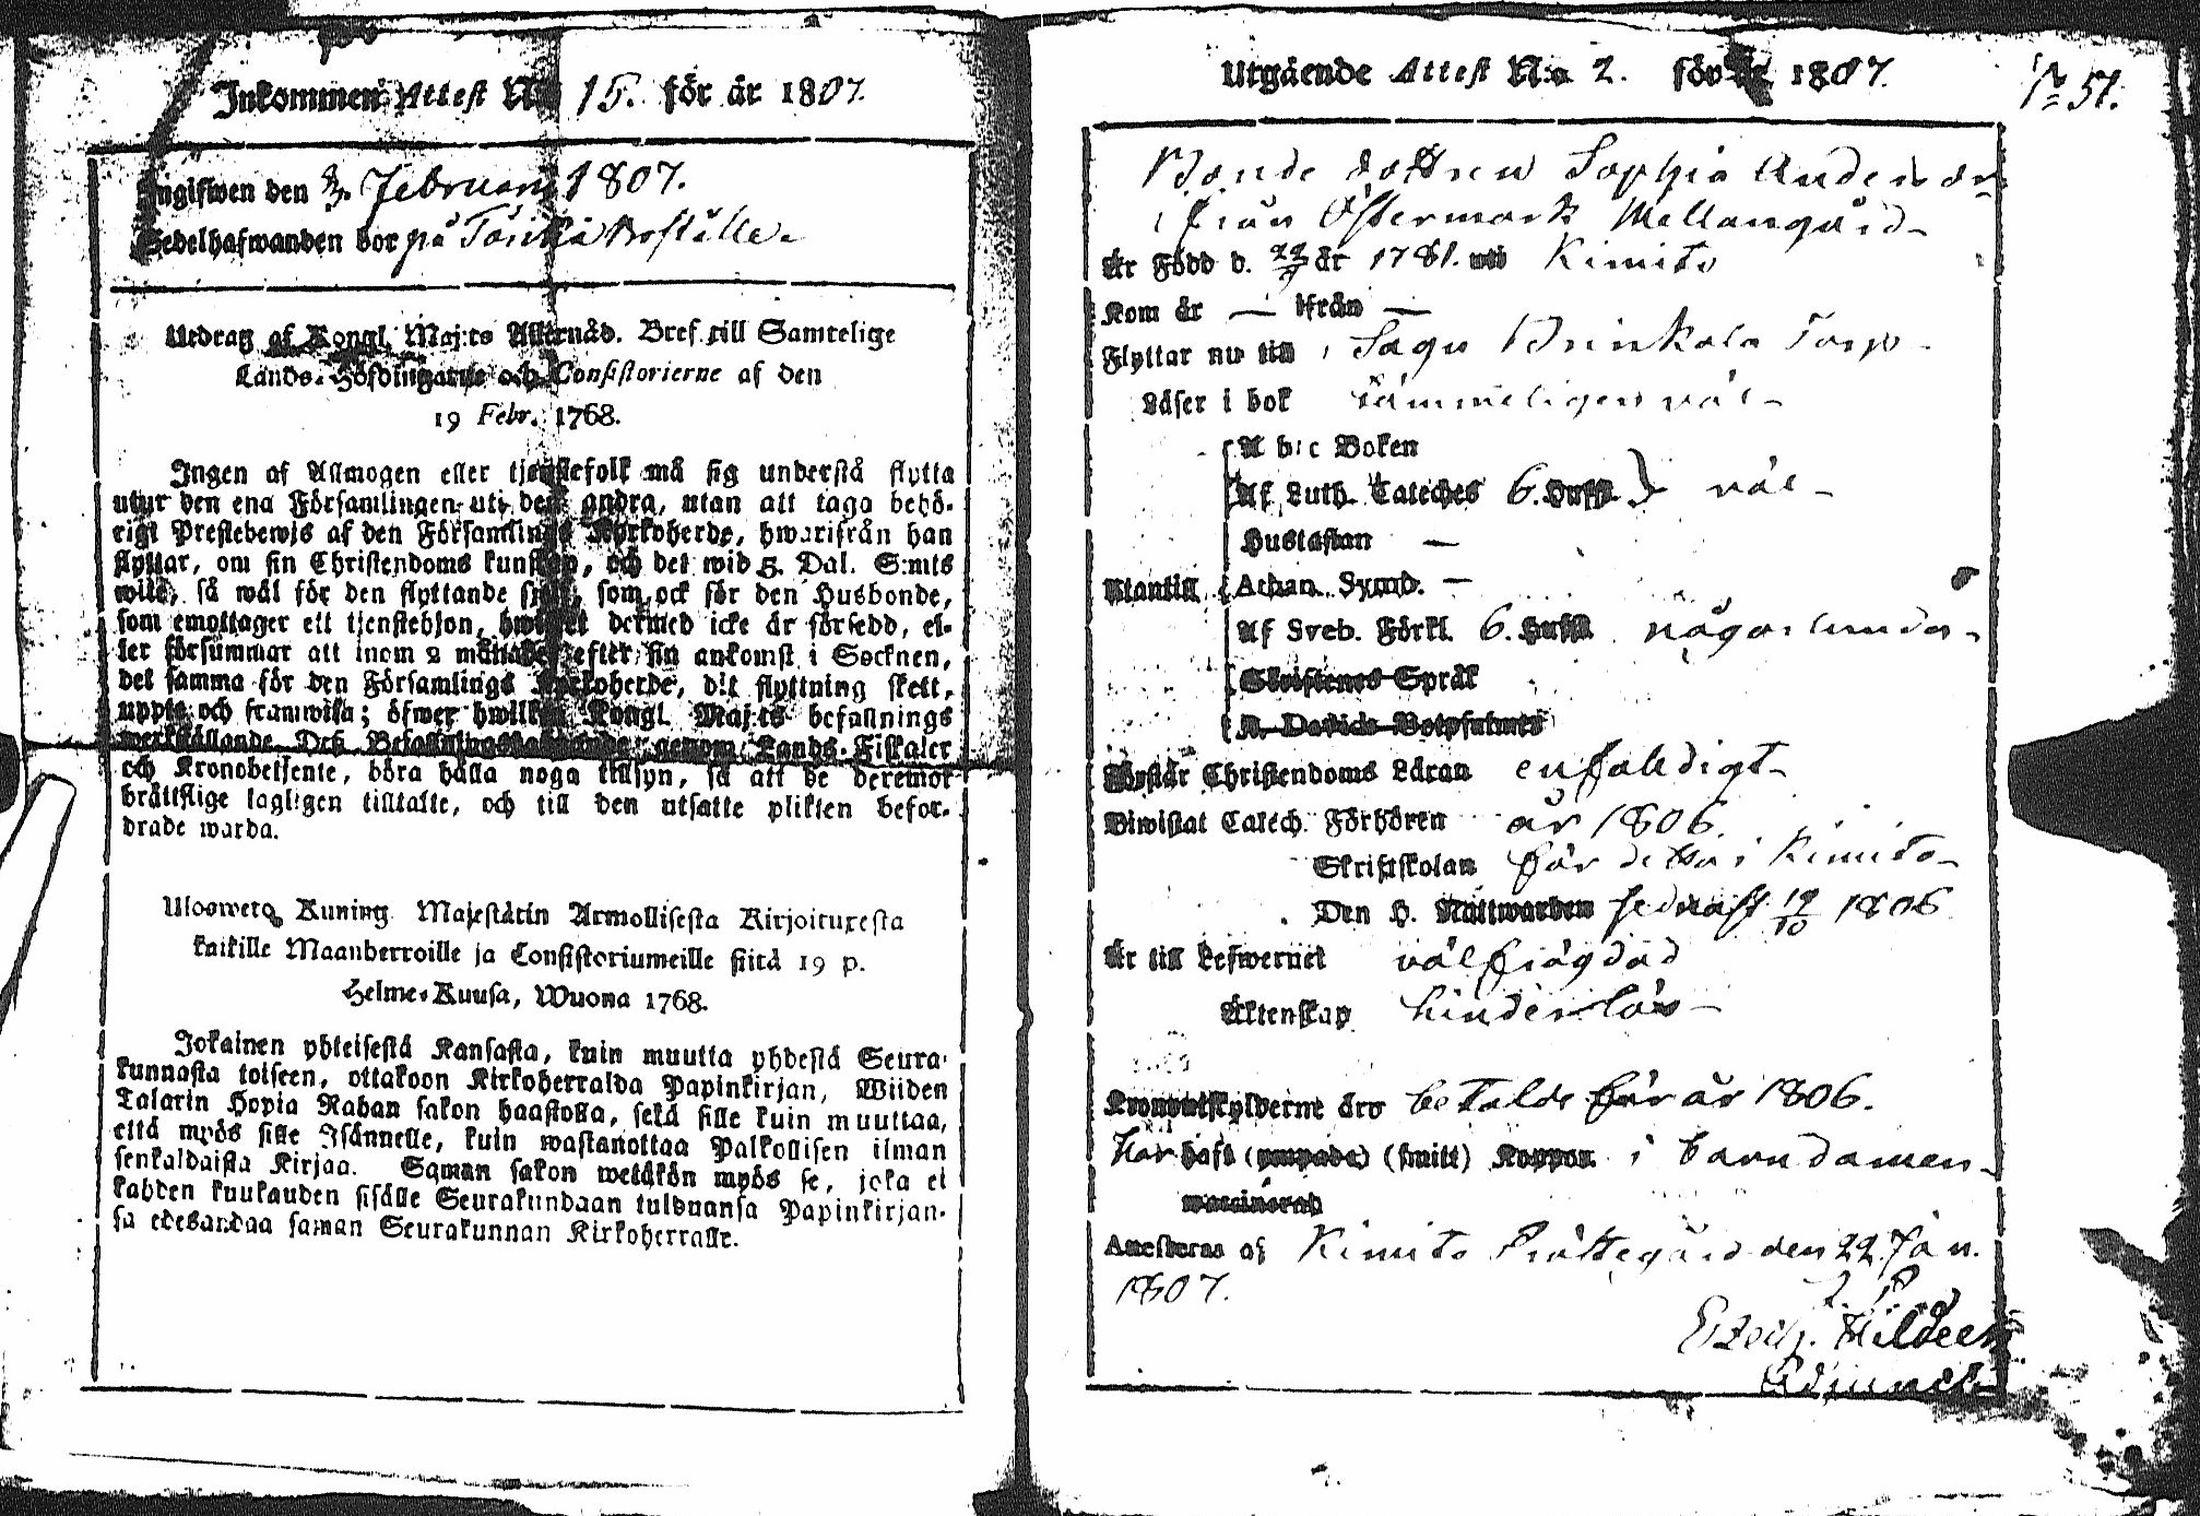 Inkommen Attest No 15. för år 1807.
Ingifwen den 3. Februari 1807.
Sedelhafwanden bor på
Utdrag af Kongl. Maj:ts Allernåd. Bref till Samtelige
Lands-Höfdingarne och Consistorierne af den
19 Febr. 1768.
Ingen af Allmogen eller tjenstefolk må sig understå flytta
utur den ena Församlingen uti den andra, utan att taga behö-
rigt Prestebewis af den Församlings Kyrkoherde, hwarifrån han
flyttar, om sin Christendoms kunskap, och det wid 5. Dal. S:mts
wite, så wäl för den flyttande sjelf, som ock för den Husbonde,
som emottager ett tjenstehjon, hwilket dermed icke är försedd, el-
ler försummar att inom 2 månader efter sin ankomst i Socknen,
det samma för den Församlings Kyrkoherde, dit flyttning skett,
uppte och framwisa; öfwer hwilken Kongl. Maj:ts befallnings
werkställande Deß Befallningshafwande, genom Lands-Fiskaler
och Kronobetjente, böra hålla noga tillsyn, så att de deremot
bråttslige lagligen tilltalte, och till den utsatte plikten befor-
drade warda.
Ulosweto Kuning. Majestätin Armollisesta Kirjoituxesta
kaikille Maanherroille ja Consistoriumeille siitä 19 p.
Helme-Kuusa, Wuona 1768.
Jokainen yhteisestä Kansasta, kuin muutta yhdestä Seura-
kunnasta toiseen, ottakoon Kirkoherralda Papinkirjan, Wiiden
Talarin Hopia Rahan sakon haastolla, sekä sille kuin muuttaa,
että myös sille Isännelle, kuin wastanottaa Palkollisen ilman
senkaldaista Kirjaa. Saman sakon wetäkön myös se, joka ei
kahden kuukauden sisälle Seurakundaan tulduansa Papinkirjan-
sa edesandaa saman Seurakunnan Kirkoherralle.
Utgående Attest N:o 2. för år 1807.
No 51.
Bonde dottren Sophia Andersdr
från Östermark Mellangård
Är Född d. 22/9 år 1781. uti Kimito
Kom år — ifrån —
Flyttar nu till Sagu Brinkala Torp
Läser i bok tämmeligen väl
A b c Boken
Af Luth. Cateches 6. Hufst. } väl
Hustaflan —
Utantill { Athan. Symb. —
Af Sveb. Förkl. 6. Hufst. någorlunda
Skriftenes Språk
K. Davids Botpsalmer
Förstår Christendoms Läran enfaldigt
Biwistat Catech. Förhören år 1806.
Skriftskolan för detta i Kimito
Den H. Nattwarden sednast 19/10 1806
Är till Lefwernet välfrägdad
Äktenskap hinderlös
Kronoutskylderne äro betalde för år 1806.
Har haft (ympade) (smitt) Koppor i barndomen
waccinerad
Attesteras af Kimito Prästegård den 22 Jan.
1807.